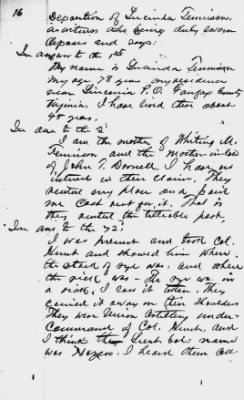 16
Deposition of Lucinda Fennison.
a witness who being duly sworn
deposes and says:
In answer to the 1st
My name is Lucinda Fennison
My age 78 years my residence
near Lincolnia P.O. Fairfax County
Virginia I have lived there about
45 years.
In ans to the 2d
I am the mother of Whiting M.
Fennison and the mother-in-law
of John T. Dowell I have no
interest in their claim. They
rented my place and paid
me cash rent for it. That is
they rented the tillable part.
In ans to the 72d
I was present and told Col.
Hunt and showed him where
the stack of rye was and where
the rick was - the rye was in
a rick. I saw it taken - they
carried it away on their shoulders
They were Union Artillery under
Command of Col. Hunt, and
I think the Lieut Cols name
was Hays. I heard them call